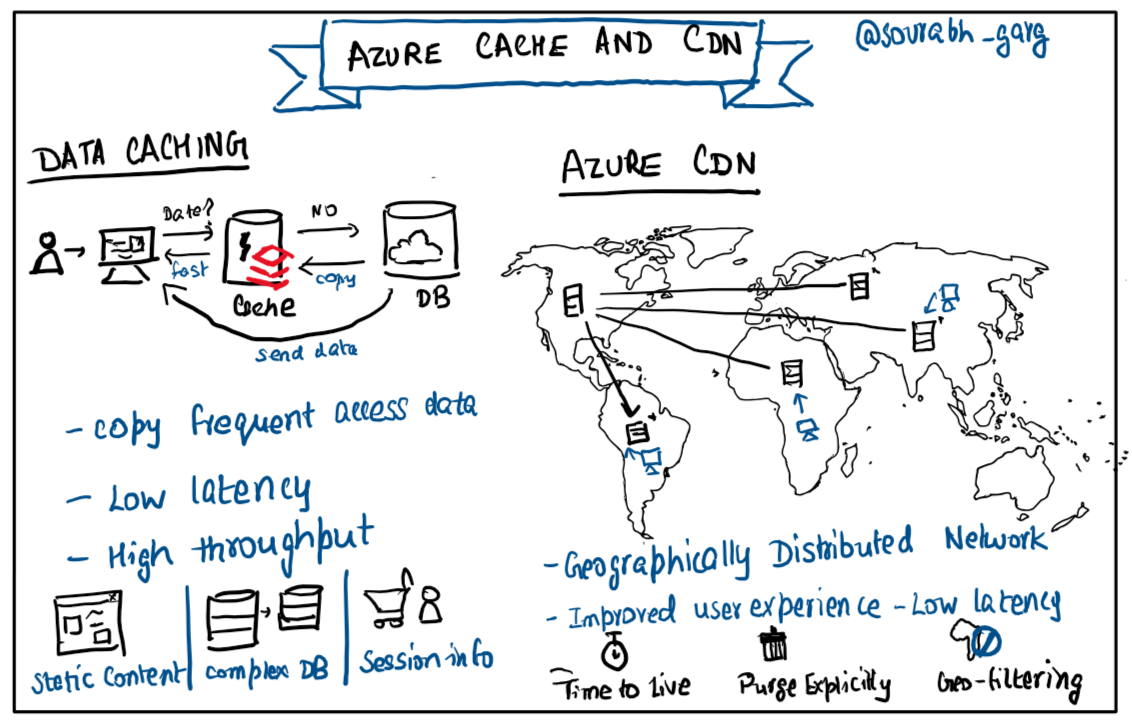 AZURE CACHE AND CDN
@sourabh_garg
DATA CACHING
Data?
NO
fast
copy
Cache
DB
send data
- copy frequent access data
- Low latency
- High throughput
Static Content
complex DB
Session info
AZURE CDN
- Geographically Distributed Network
- Improved user experience - Low latency
Time to Live
Purge Explicitly
Geo-filtering